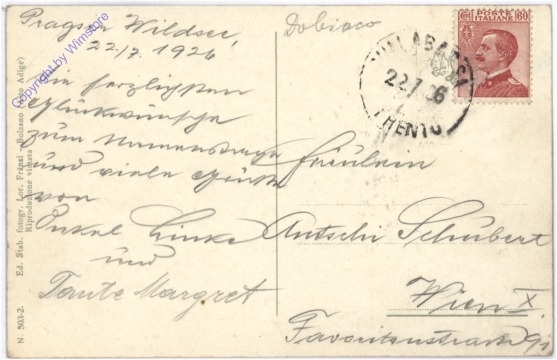 Pragser Wildsee,
22/7. 1926
Die herzlichsten
Glückwünsche
zum Namenstage
und viele Grüße
von
Onkel Linke
und
Tante Margret
Dobiaco
Fräulein
Antschi Schubert
Wien X.
Favoritenstrasse 91
POSTE
ITALIANE
60
VILLABASSA
22.7.26
TRENTO
N. 503-2. Ed. Stab. fotogr. Lor. Fränzl Bolzano (Alto Adige)
Riproduzione vietata
Copyright by Winstore